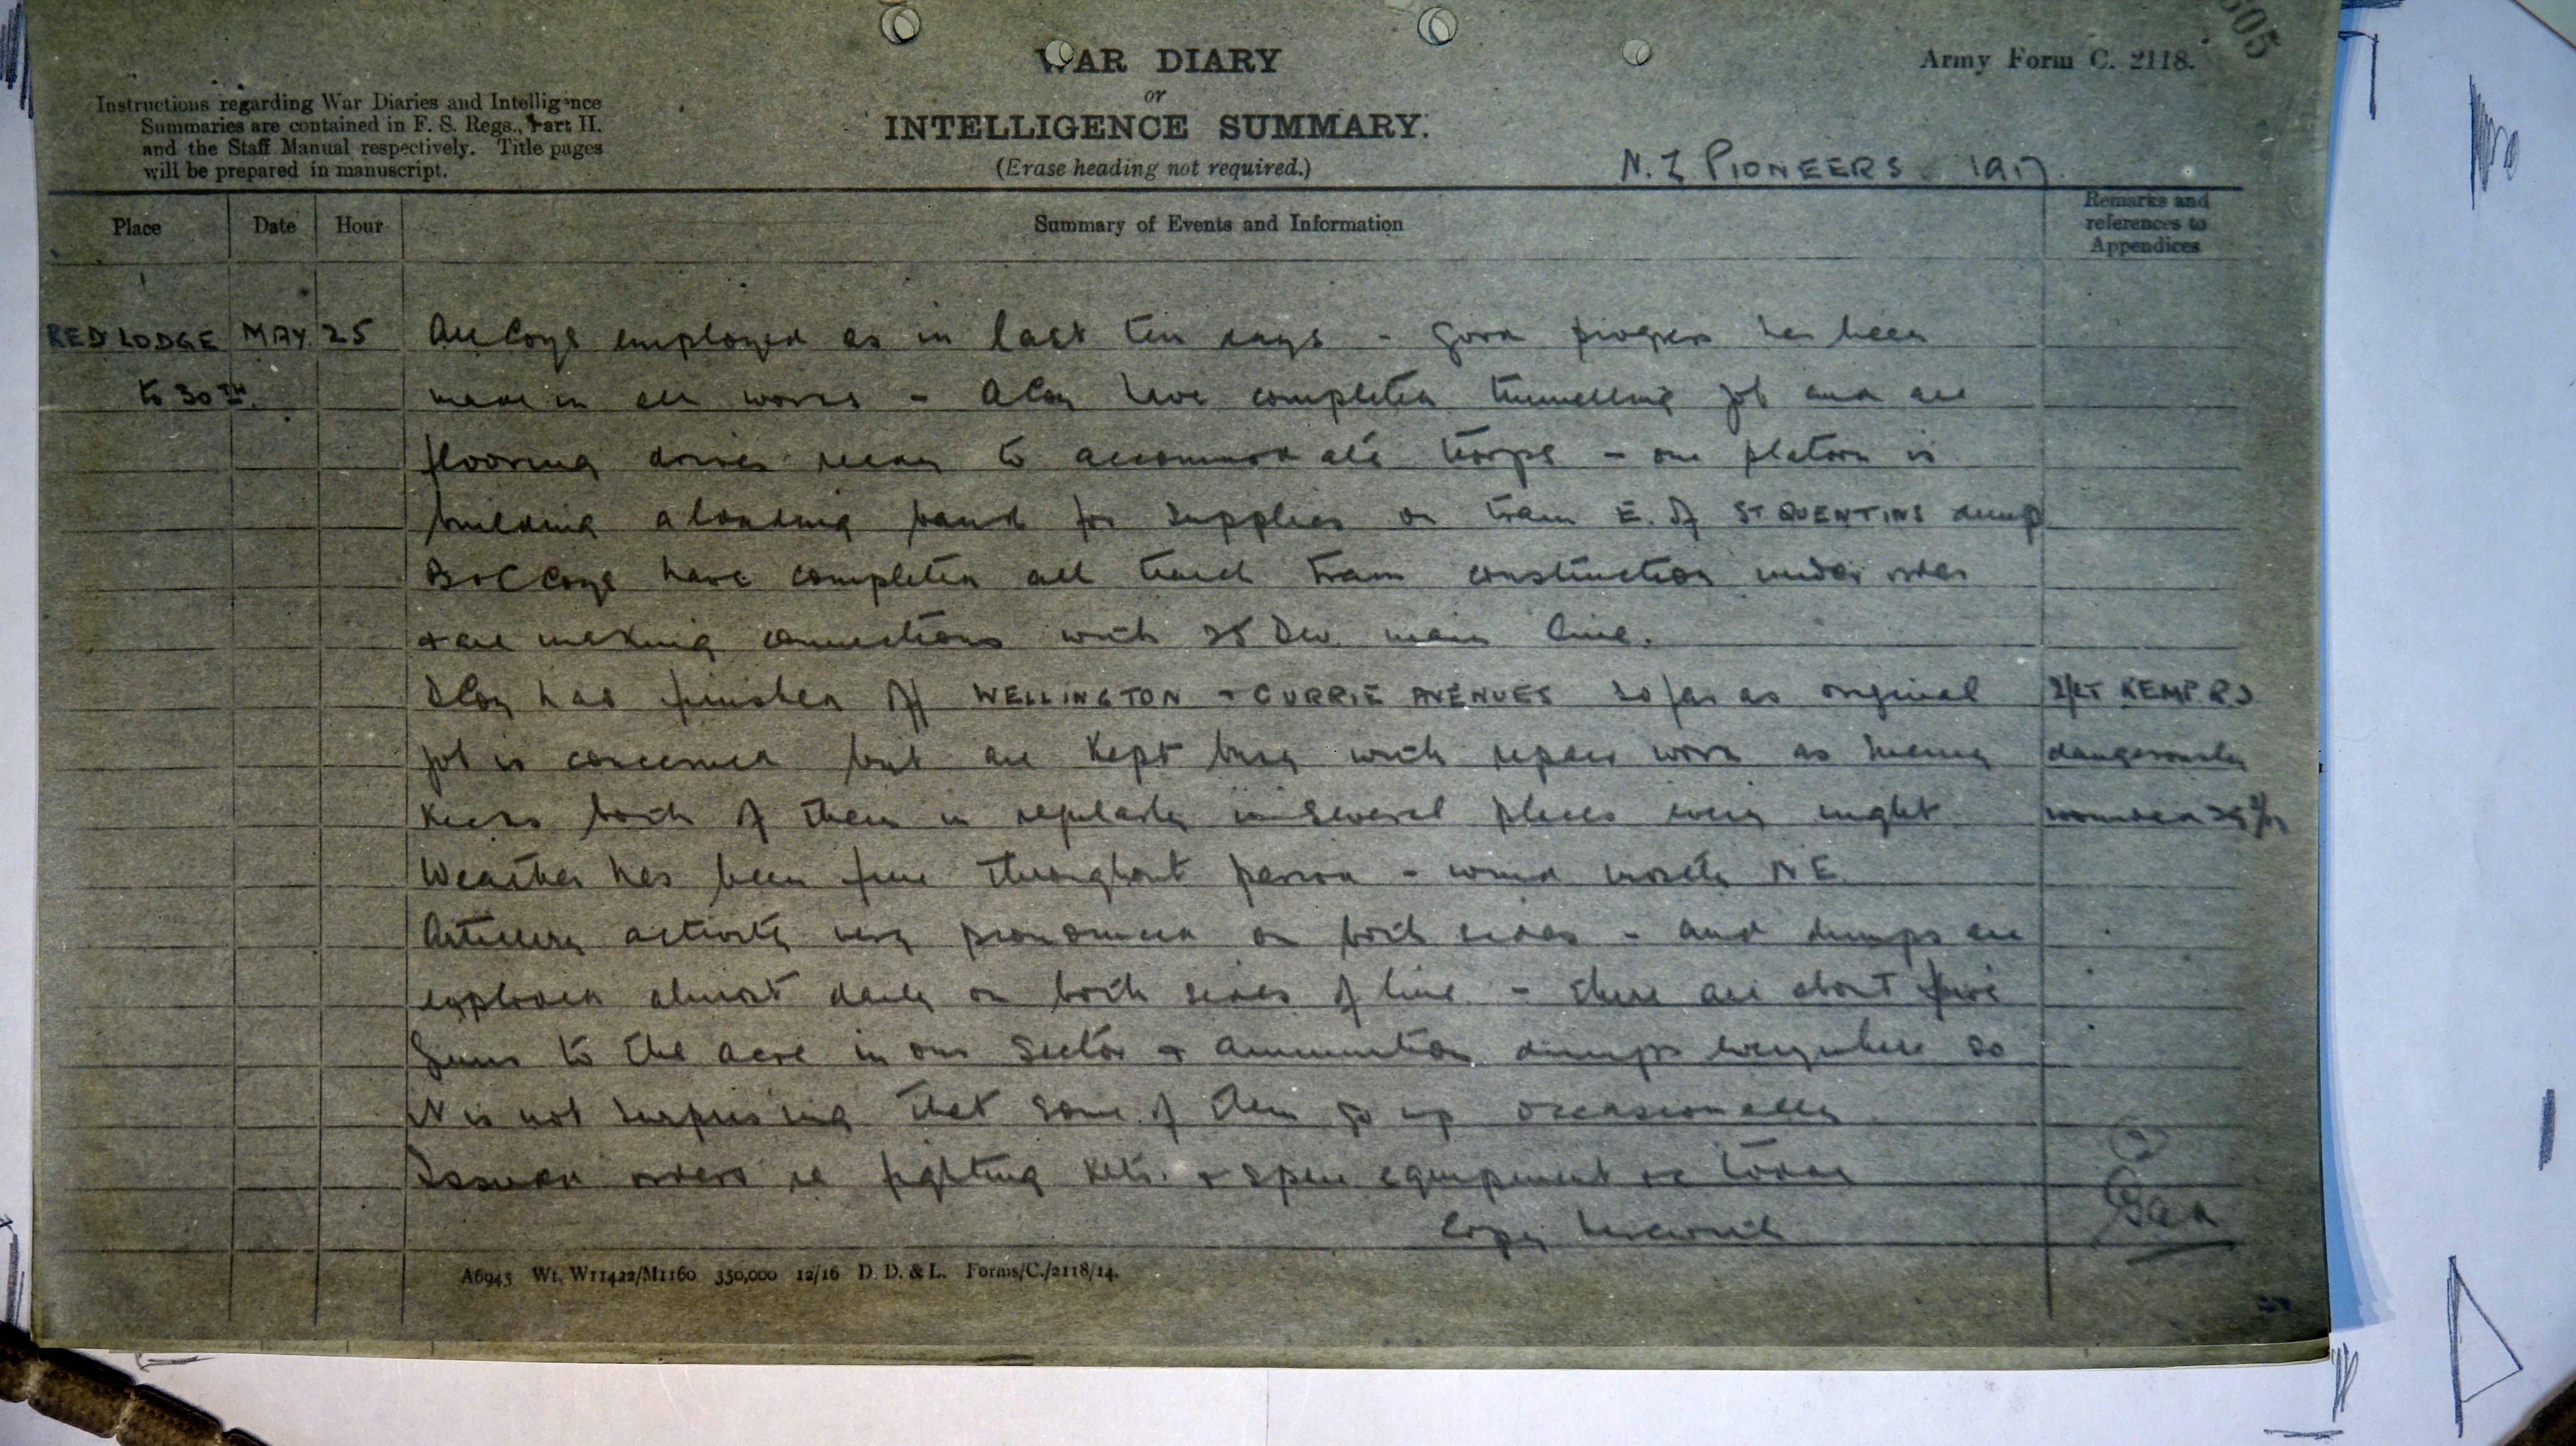 605
WAR DIARY
or
INTELLIGENCE SUMMARY.
(Erase heading not required.)
Army Form C. 2118.
Instructions regarding War Diaries and Intelligence
Summaries are contained in F. S. Regs., Part II.
and the Staff Manual respectively. Title pages
will be prepared in manuscript.
N. Z PIONEERS 1917
Place Date Hour Summary of Events and Information Remarks and references to Appendices
RED LODGE MAY 25 All Coys employed as in last ten days - good progress has been
to 30TH. made in all works - A Coy have completed tunnelling job and are
flooring drives ready to accommodate troops - one platoon is
building a loading bank for supplies on tram E. of ST QUENTINS dump
B & C Coys have completed all trench tram construction under order
& are making connections with 25 Div. main line.
D Coy has finished off WELLINGTON & CURRIE AVENUES so far as original 2/LT KEMP R J
job is concerned but are kept busy with repair work as enemy dangerously
knocks both of them in regularly in several places every night wounded
Weather has been fine throughout period - wind mostly NE.
Artillery activity very pronounced on both sides - and dumps are
exploded almost daily on both sides of line - there are about five
guns to the acre in our sector & ammunition dumps everywhere so
it is not surprising that some of them go up occasionally
Issued orders re fighting kits. & spare equipment etc today
Copy herewith
A6945 Wt. W11422/M1160 350,000 12/16 D. D. & L. Forms/C./2118/14.